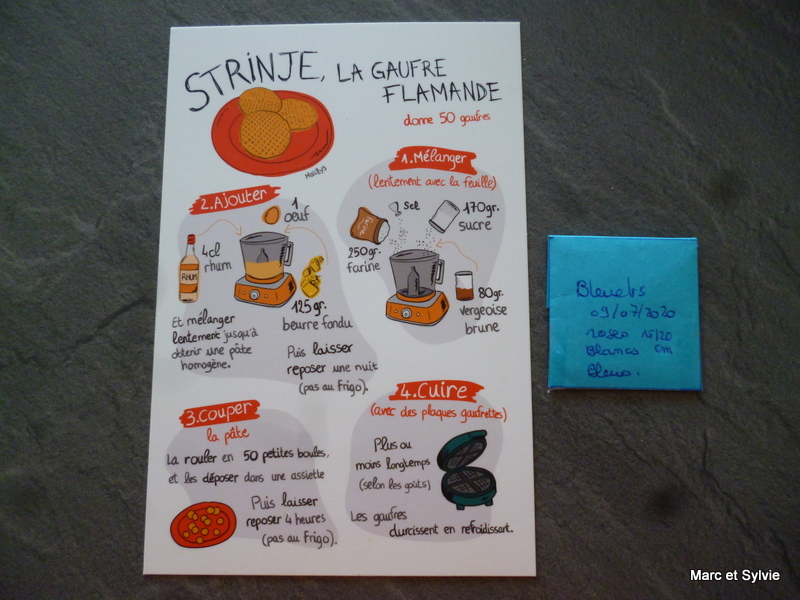 STRINJE, LA GAUFRE
FLAMANDE
donne 50 gaufres
1. Mélanger
(lentement avec la feuille)
1 Sel
170gr.
sucre
Farine
250gr.
farine
80gr.
vergeoise
brune
2. Ajouter
1
oeuf
4cl
rhum
RHUM
125gr.
beurre fondu
Et mélanger
lentement jusqu'à
obtenir une pâte
homogène.
Puis laisser
reposer une nuit
(pas au Frigo).
3. Couper
la pâte
La rouler en 50 petites boules,
et les déposer dans une assiette
Puis laisser
reposer 4 heures
(pas au Frigo).
4. Cuire
(avec des plaques gaufrettes)
Plus ou
moins longtemps
(selon les goûts)
Les gaufres
durcissent en refroidissant.
Bleuets
09/07/2020
roses 15/20
Blancs cm
Bleus.
Marc et Sylvie